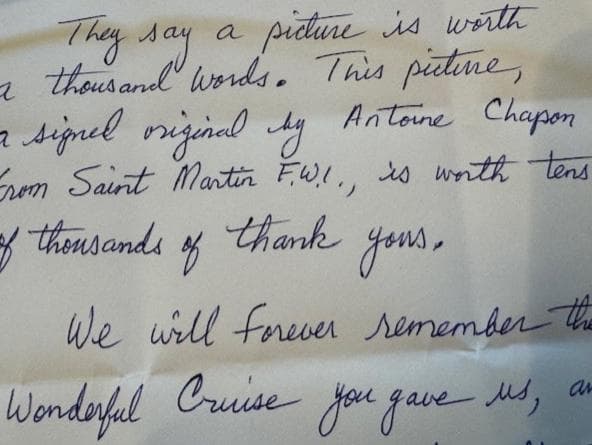 They say a picture is worth
a thousand words. This picture,
a signed original by Antoine Chapon
from Saint Martin F.W.I., is worth tens
of thousands of thank yous.
We will forever remember the
Wonderful Cruise you gave us,